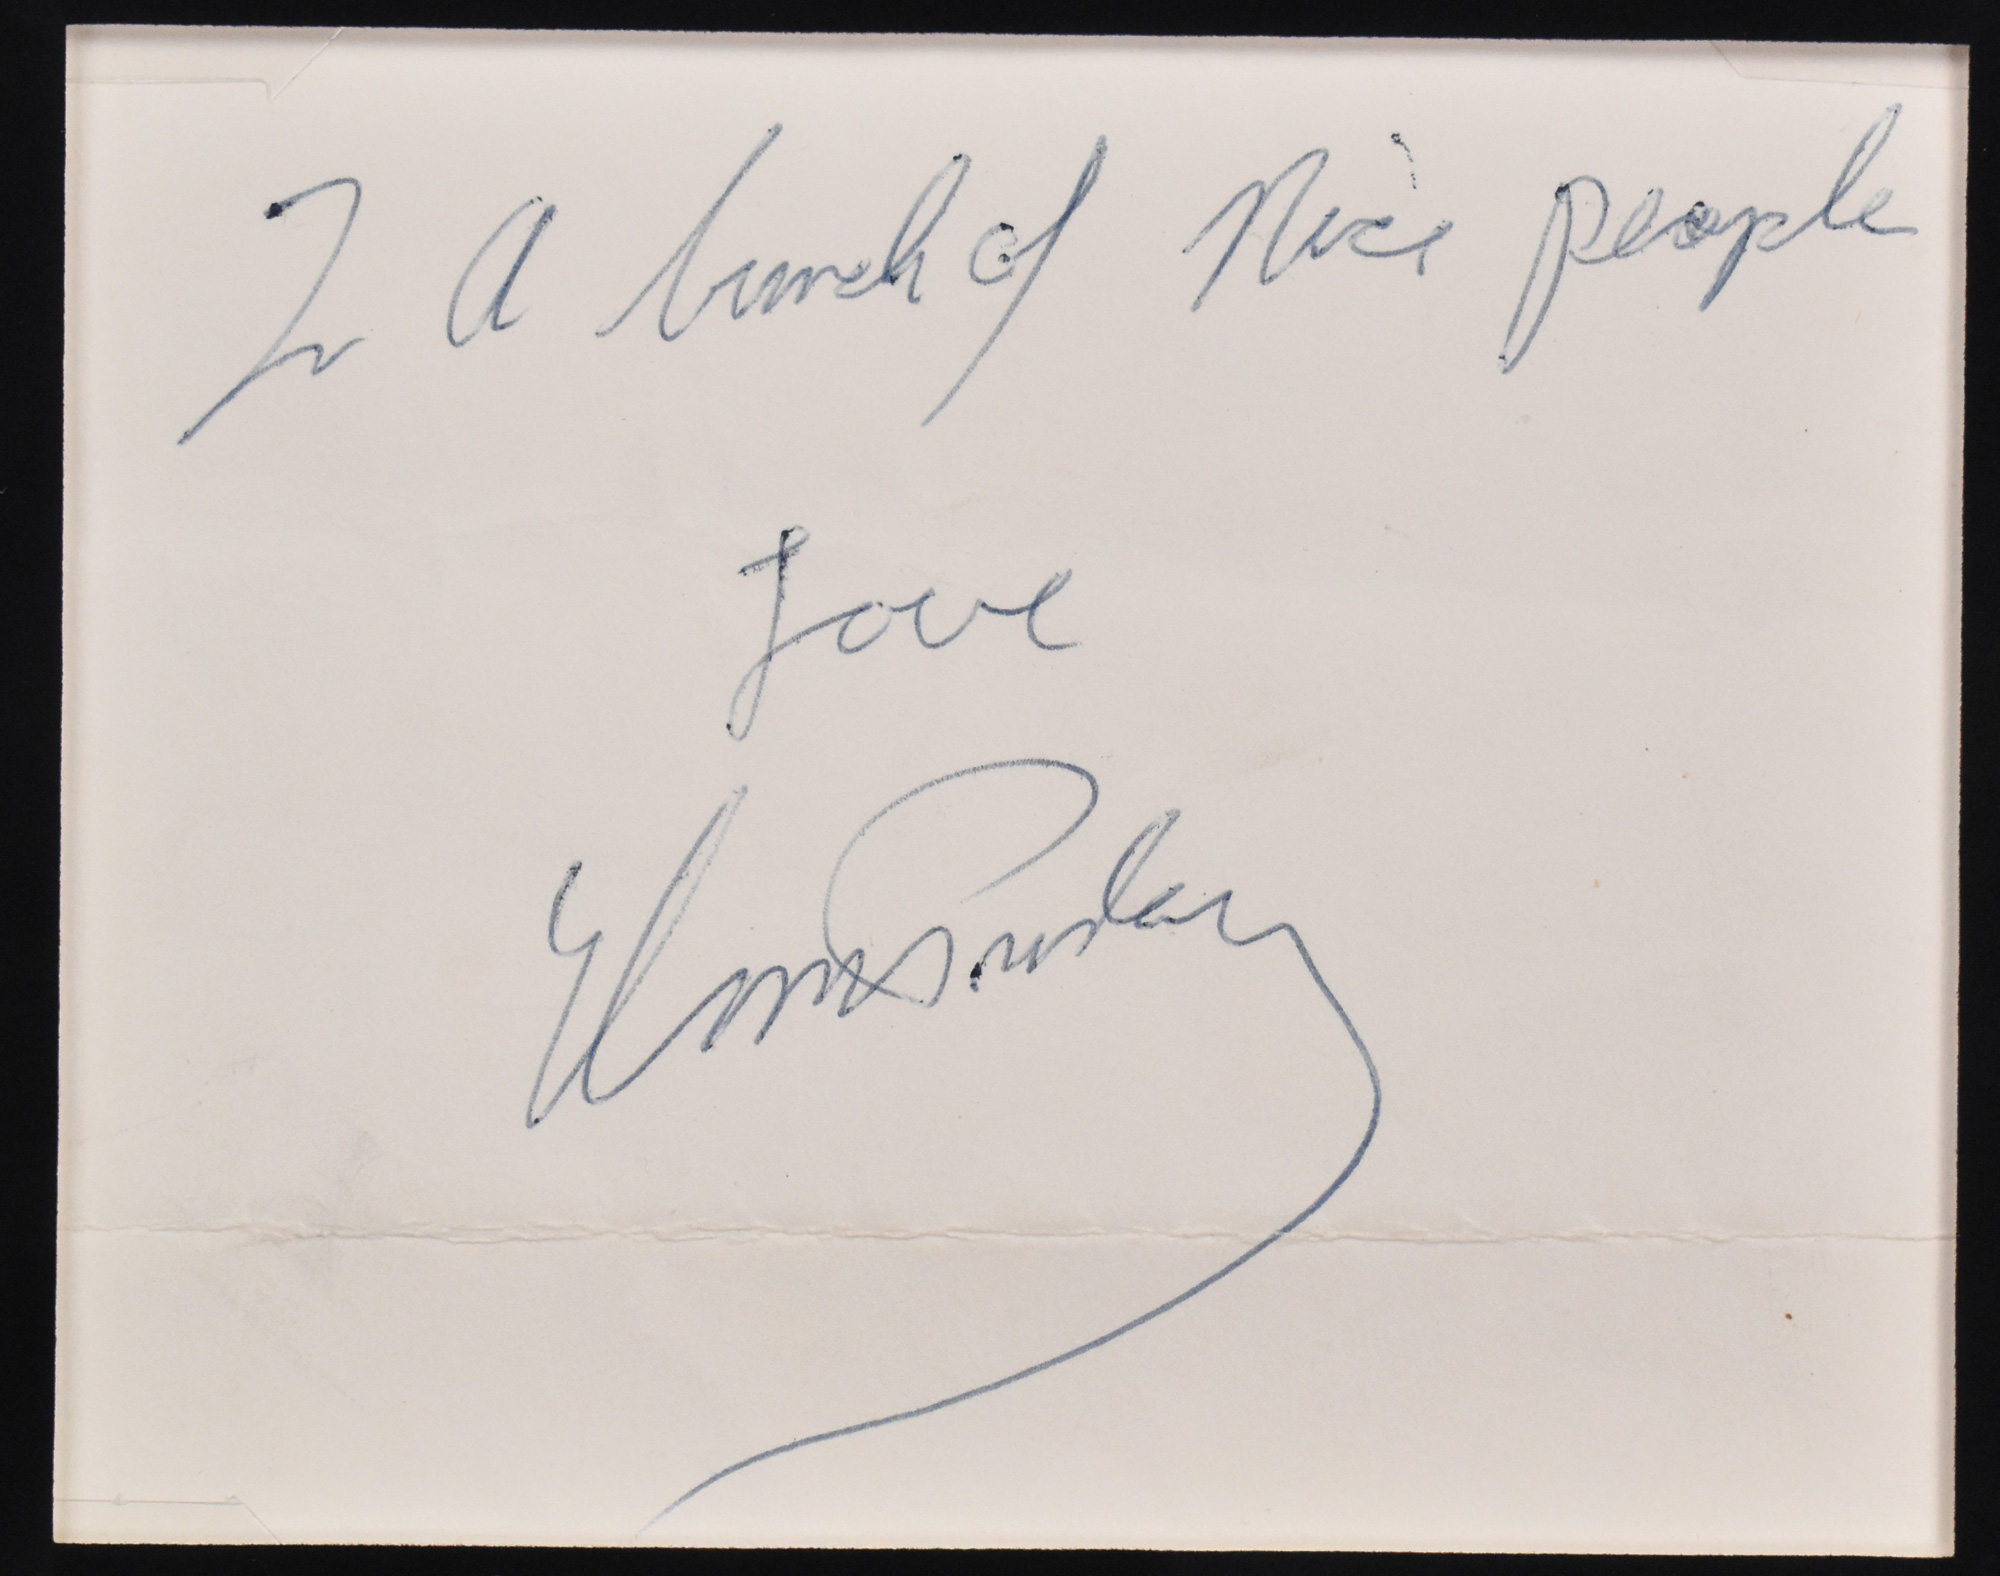 To A bunch of Nice people
Love
Elvis Presley